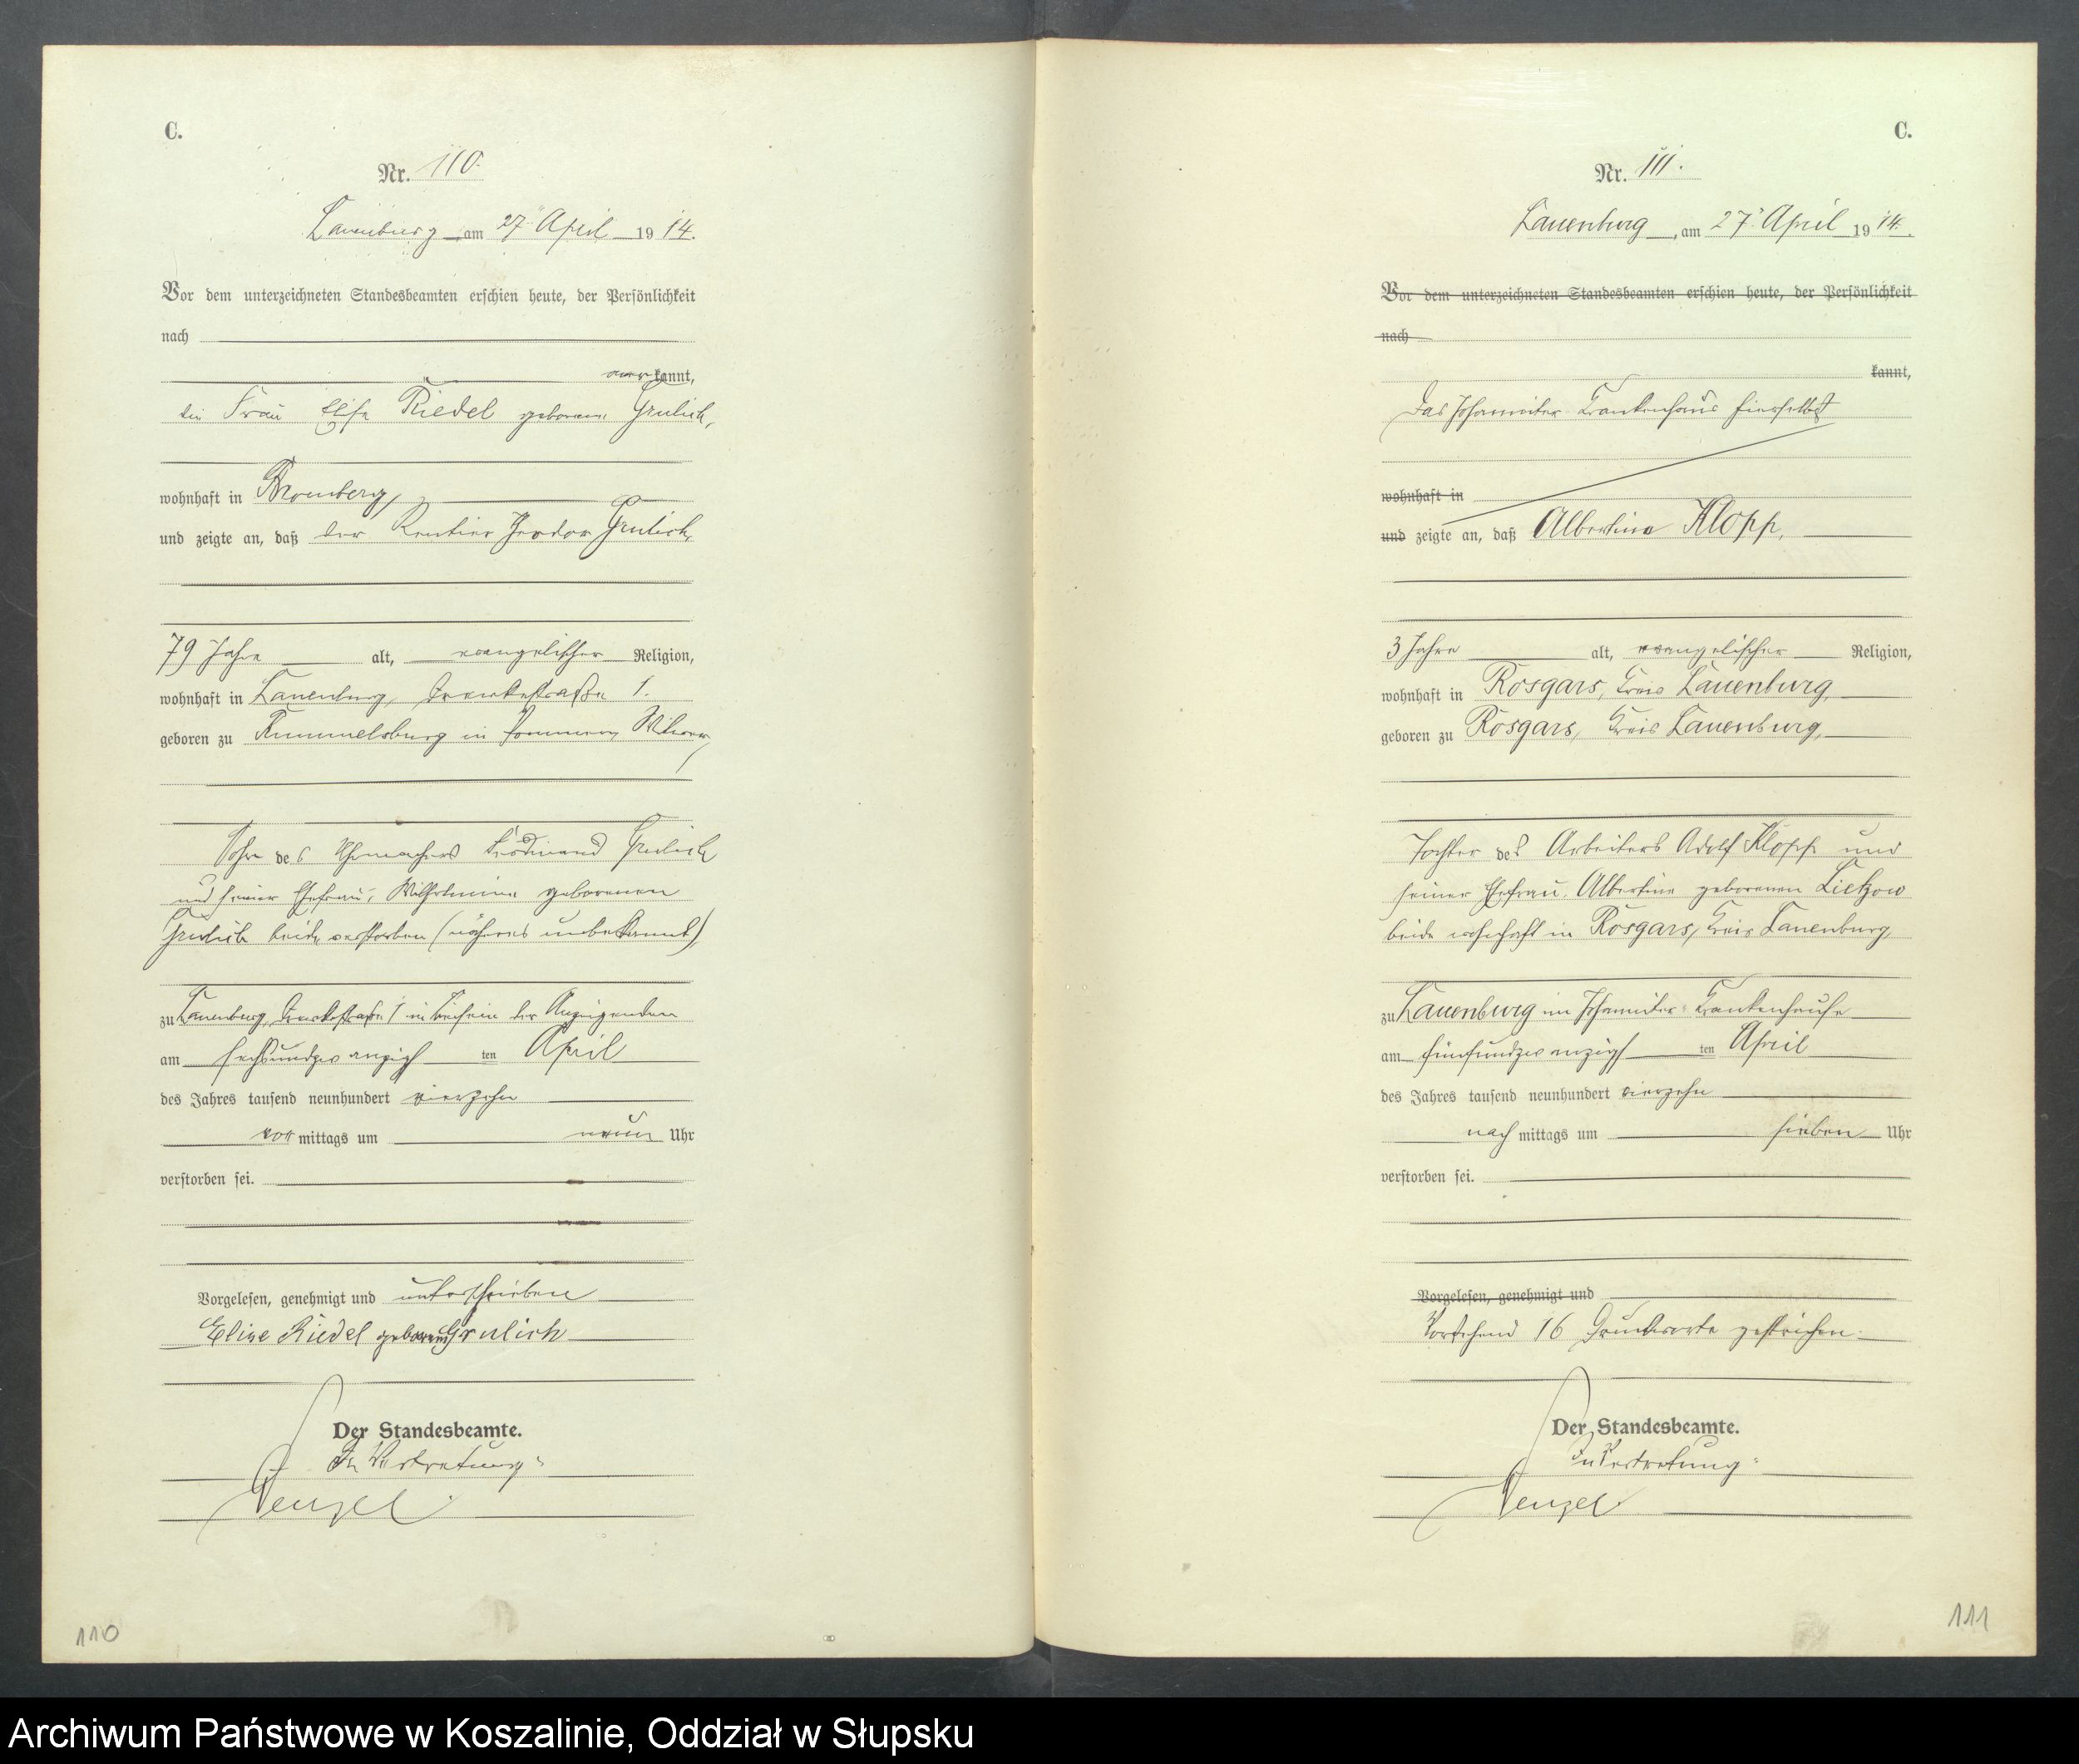 C.
Nr. 110.
Lauenburg am 27. April 1914.
Vor dem unterzeichneten Standesbeamten erschien heute, der Persönlichkeit
nach
kannt,
die Frau Elise Riedel geborene Grulich,
wohnhaft in Bromberg,
und zeigte an, daß der Rentier Theodor Grulich,
79 Jahre alt, evangelischer Religion,
wohnhaft in Lauenburg, 1.
geboren zu Rummelsburg in Pommern, Witwer,
Sohn des Uhrmachers Ferdinand Grulich
und seiner Ehefrau, Wilhelmine geborenen
Grulich beide verstorben (näheres unbekannt)
zu Lauenburg, 1 im Beisein der Anzeigenden
am sechsundzwanzigsten April
des Jahres tausend neunhundert vierzehn
vormittags um neun Uhr
verstorben sei.
Vorgelesen, genehmigt und unterschrieben
Elise Riedel geborene Grulich
Der Standesbeamte.
In Vertretung:
Wenzel.
110
C.
Nr. 111.
Lauenburg, am 27. April 1914.
Vor dem unterzeichneten Standesbeamten erschien heute, der Persönlichkeit
nach
kannt,
Das Johanniter-Krankenhaus hierselbst
wohnhaft in
und zeigte an, daß Albertine Klopp,
3 Jahre alt, evangelischer Religion,
wohnhaft in Rosgars, Kreis Lauenburg,
geboren zu Rosgars, Kreis Lauenburg,
Tochter des Arbeiters Adolf Klopp und
seiner Ehefrau, Albertine geborenen Lietzow
beide wohnhaft in Rosgars, Kreis Lauenburg,
zu Lauenburg im Johanniter-Krankenhause
am fünfundzwanzigsten April
des Jahres tausend neunhundert vierzehn
nachmittags um sieben Uhr
verstorben sei.
Vorgelesen, genehmigt und
Vorstehend 16 Druckworte gestrichen.
Der Standesbeamte.
In Vertretung:
Wenzel.
111
Archiwum Państwowe w Koszalinie, Oddział w Słupsku